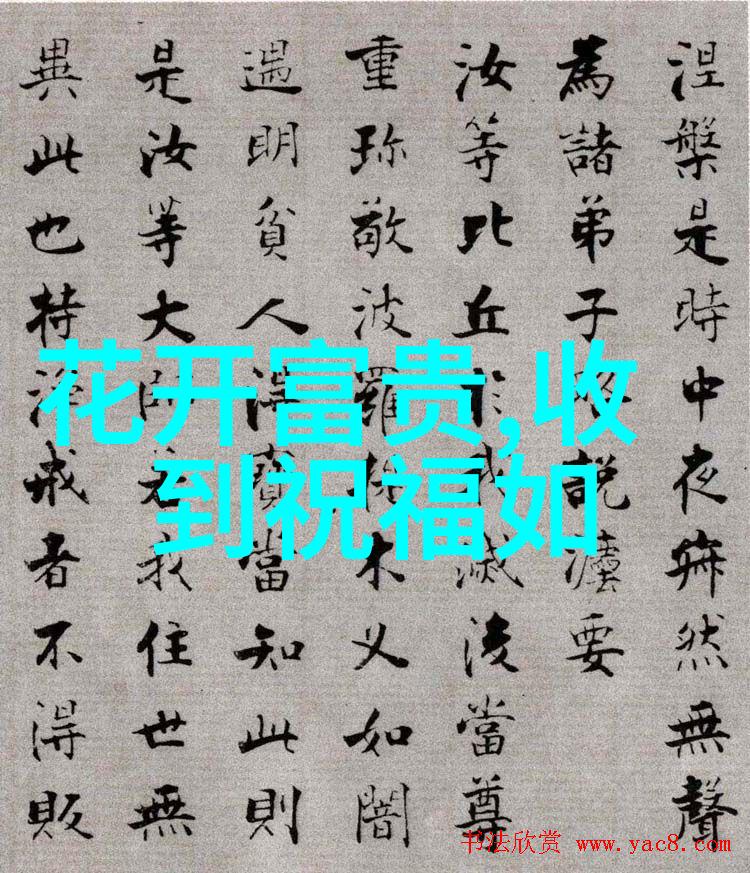 涅槃是時中夜寂然無聲
為諸弟子略說法要
汝等比丘於我滅後當尊
重珍敬波羅提木叉如闇
遇明貧人得寶當知此則
是汝等大師若我住世無
異此也持淨戒者不得販
花开富贵,收
到祝福如
书法欣赏 www.yac8.com